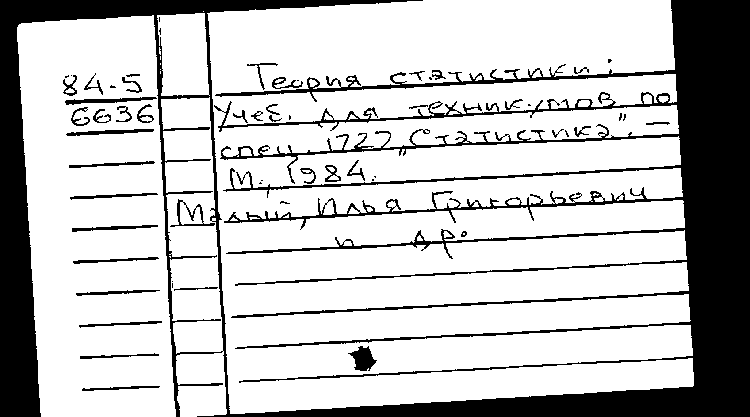 84-5
6636
Теория статистики:
Учеб. для техникумов по
спец. 1727 „Статистика". —
М., 1984.
Малый, Илья Григорьевич
и др.